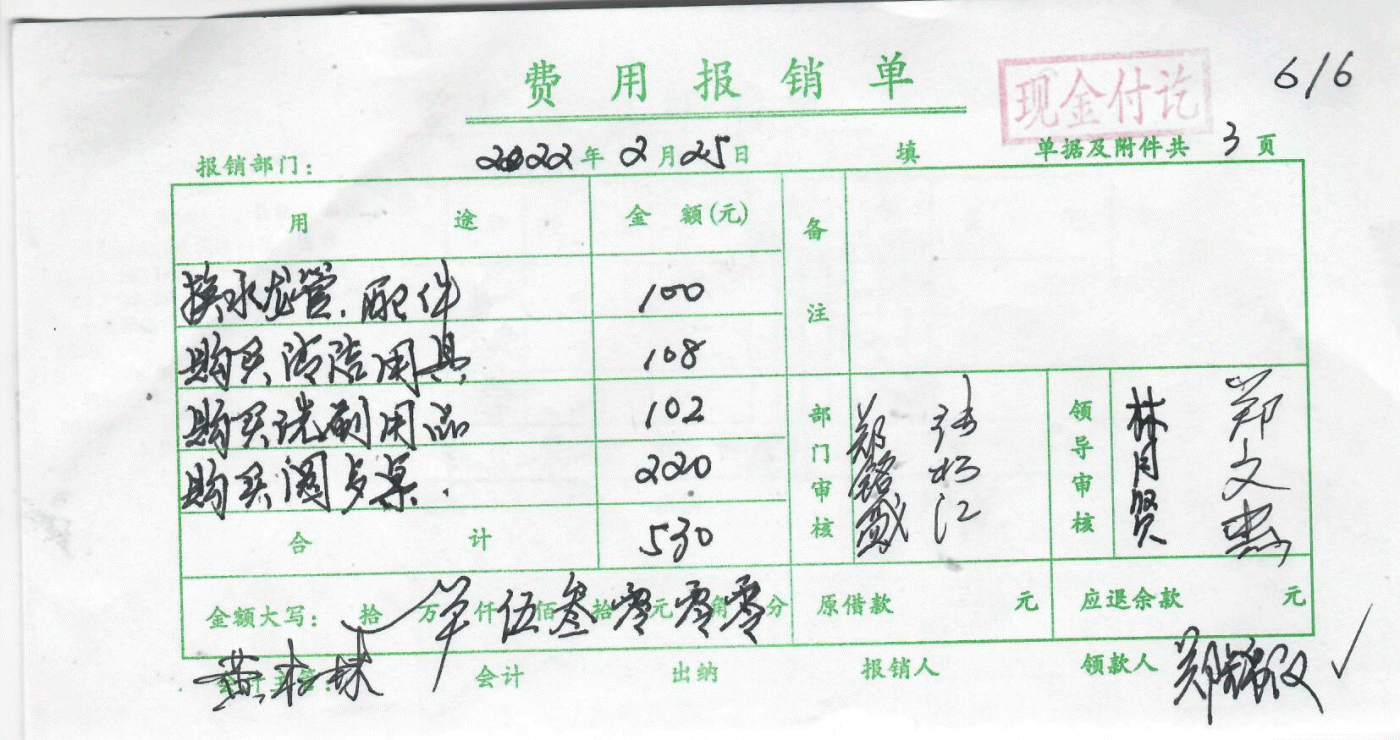 费用报销单
现金付讫
6/6
报销部门： 2022年2月25日 填 单据及附件共 3 页
用途 金额(元) 备注
换水龙管.配件 100
购买清洁用具 108
购买洗刷用品 102
购买 桌. 2020
合计 530
部门审核 郑铭 张 江
领导审核 林月贤 郑文
金额大写： 拾 万 仟 伍佰 叁拾 零元 零角 零分 原借款 元 应退余款 元
会计主管： 黄 会计 出纳 报销人 领款人 郑 ✓